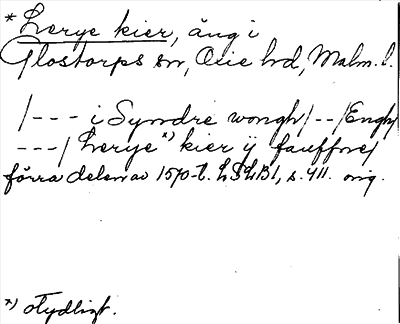 * Lerye kier, äng i
Glostorps sn, Oxie hd, Malm. l.
/--- i Syndre wongh/--/Engh/
---/ Lerye x) kier ij fauffne/
förra delen av 1570-t. LSLB1, s. 411. orig.
x) otydligt.